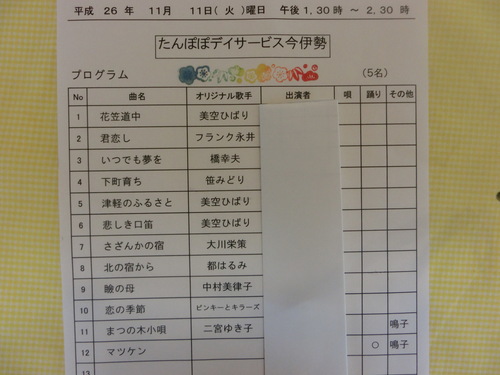 平成 26 年 11月 11日( 火 )曜日 午後 1,30時 ～ 2,30時
たんぽぽデイサービス今伊勢
プログラム (5名)
No 曲名 オリジナル歌手 出演者 唄 踊り その他
1 花笠道中 美空ひばり
2 君恋し フランク永井
3 いつでも夢を 橋幸夫
4 下町育ち 笹みどり
5 津軽のふるさと 美空ひばり
6 悲しき口笛 美空ひばり
7 さざんかの宿 大川栄策
8 北の宿から 都はるみ
9 瞼の母 中村美律子
10 恋の季節 ピンキーとキラーズ
11 まつの木小唄 二宮ゆき子 鳴子
12 マツケン ○ 鳴子
13